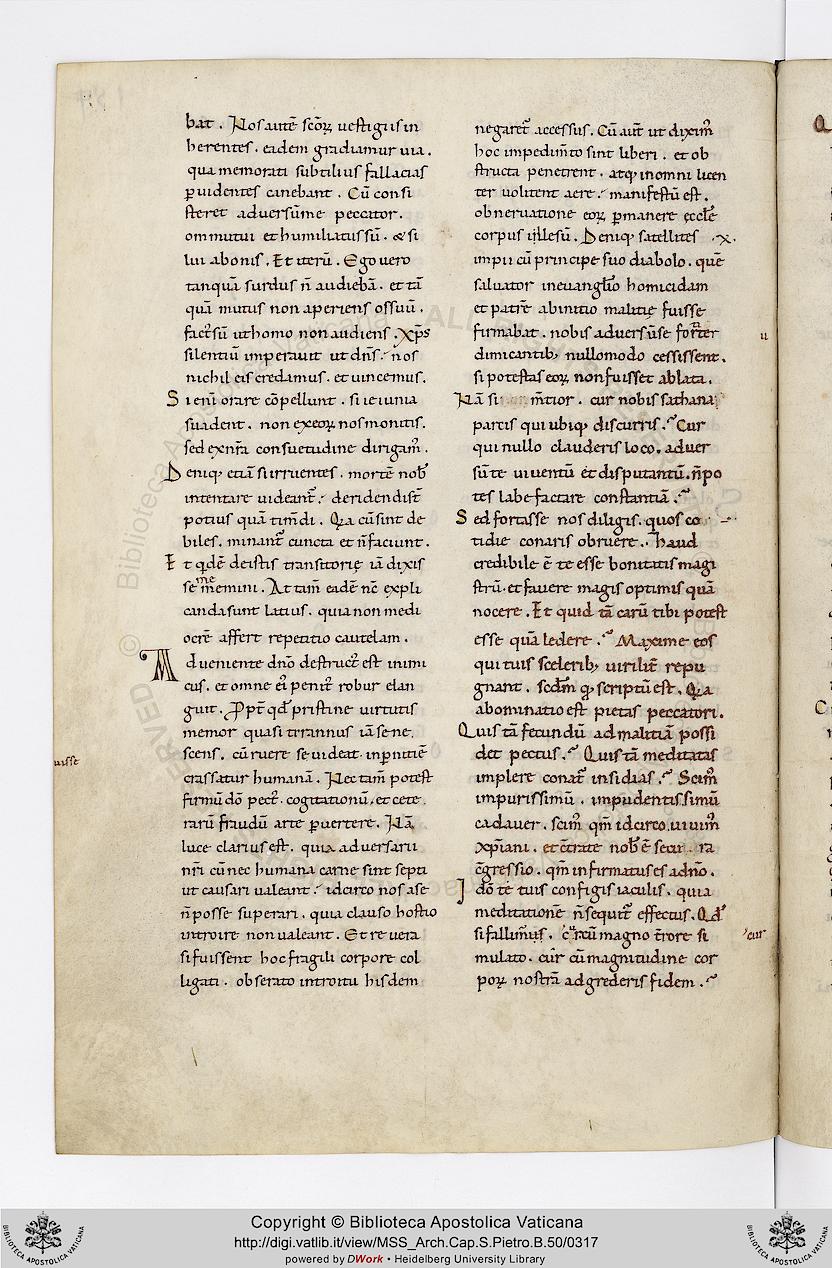 bat. Nos autē sc̄oꝝ uestigiis in
herentes. eadem gradiamur uia.
qua memorati subtilius fallacias
ꝑuidentes canebant. Cū consi
steret aduersūme peccator.
ommutui et humiliatus sū. & si
lui abonis. Et iterū. Ego uero
tanquā surdus n̄ audiebā. et tā
quā mutus non aperiens os suū.
fact᷒ sū ut homo non audiens. xp̄s
silentiū imperauit ut dn̄s. nos
nichil eis credamus. et uincemus.
Si eni orare cōpellunt. si ieiunia
suadent. non ex eoꝝ nos monitis.
sed ex nr̄a consuetudine dirigam᷒.
Deniq; etiā si irruentes. mortē nob̄
intentare uideant᷒. deridendi st̄
potius quā timēdi. Q̄a cū sint de
biles. minant᷒ cuncta et n̄ faciunt.
Et qdē de istis transitorie iā dixis
se me memini. At tam̄ eadē nc̄ expli
canda sunt latius. quia non medi
ocrē affert repetitio cautelam.
Adueniente dn̄o destruct᷒ est inimi
cus. et omne ei᷒ penit᷒ robur elan
guit. Ppt̄ qd̄ pristine uirtutis
memor quasi tirannus iā sene.
scens. cū ruere se uideat. in pnitiē
crassatur humanā. Nec tam̄ potest
firmū dō pect᷒. cogitationū. et cete
rarū fraudū arte ꝑuertere. Nā
luce clarius est. quia aduersarii
nr̄i cū nec humana carne sint septi
ut causari ualeant. idcirco nos a se
n̄ posse superari. quia clauso hostio
introire non ualeant. Et re uera
si fuissent hoc fragili corpore col
ligati. obserato introitu his dem
uisse
negaret᷒ accessus. Cū aut̄ ut dixim᷒
hoc impedim̄to sint liberi. et ob
structa penetrent. atq; in omni licen
ter uolitent aere. manifestū est.
ob neruatione eoꝝ ꝑmanere eccl̄e
corpus illesū. Deniq; satellites .x.
impii cū principe suo diabolo. quē
saluator in euanglio homicidam
et patrē ab initio malitie fuisse
firmabat. nobis aduersū se fort᷒ter
dimicantib; nullomodo cessissent.
si potestas eoꝝ non fuisset ablata.
Nā si m̄tior. cur nobis sathana
parcis qui ubiq; discurris. Cur
qui nullo clauderis loco. aduer
sū te uiuentū et disputantū. n̄ po
tes labefactare constantiā.
Sed fortasse nos diligis. quos co
tidie conaris obruere. haud
credibile ē te esse bonitatis magi
strū. et fauere magis optimis quā
nocere. Et quid tā carū tibi potest
esse quā ledere. Maxime eos
qui tuis scelerib; uirilit᷒ repu
gnant. scd̄m qd scriptū est. Q̄a
abominatio est pietas peccatori.
Quis tā fecundū ad malitiā possi
det pectus. Quis tā meditatas
implere conat᷒ insidias. Scim᷒
impurissimū. impudentissimū
cadauer. scim᷒ qm̄ idcirco uiuim᷒
xp̄iani. et c̄trate nob̄ ē secu ra
c̄gressio. qm̄ infirmatus es a dn̄o.
Idō te tuis configis iaculis. quia
meditationē n̄ sequit᷒ effectus. Qd̄
si fallim᷒us. cū magno t̄rore si
mulato. cur cū magnitudine cor
poꝝ nostrā adgrederis fidem.
u
cur
Copyright © Biblioteca Apostolica Vaticana
http://digi.vatlib.it/view/MSS_Arch.Cap.S.Pietro.B.50/0317
powered by DWork • Heidelberg University Library